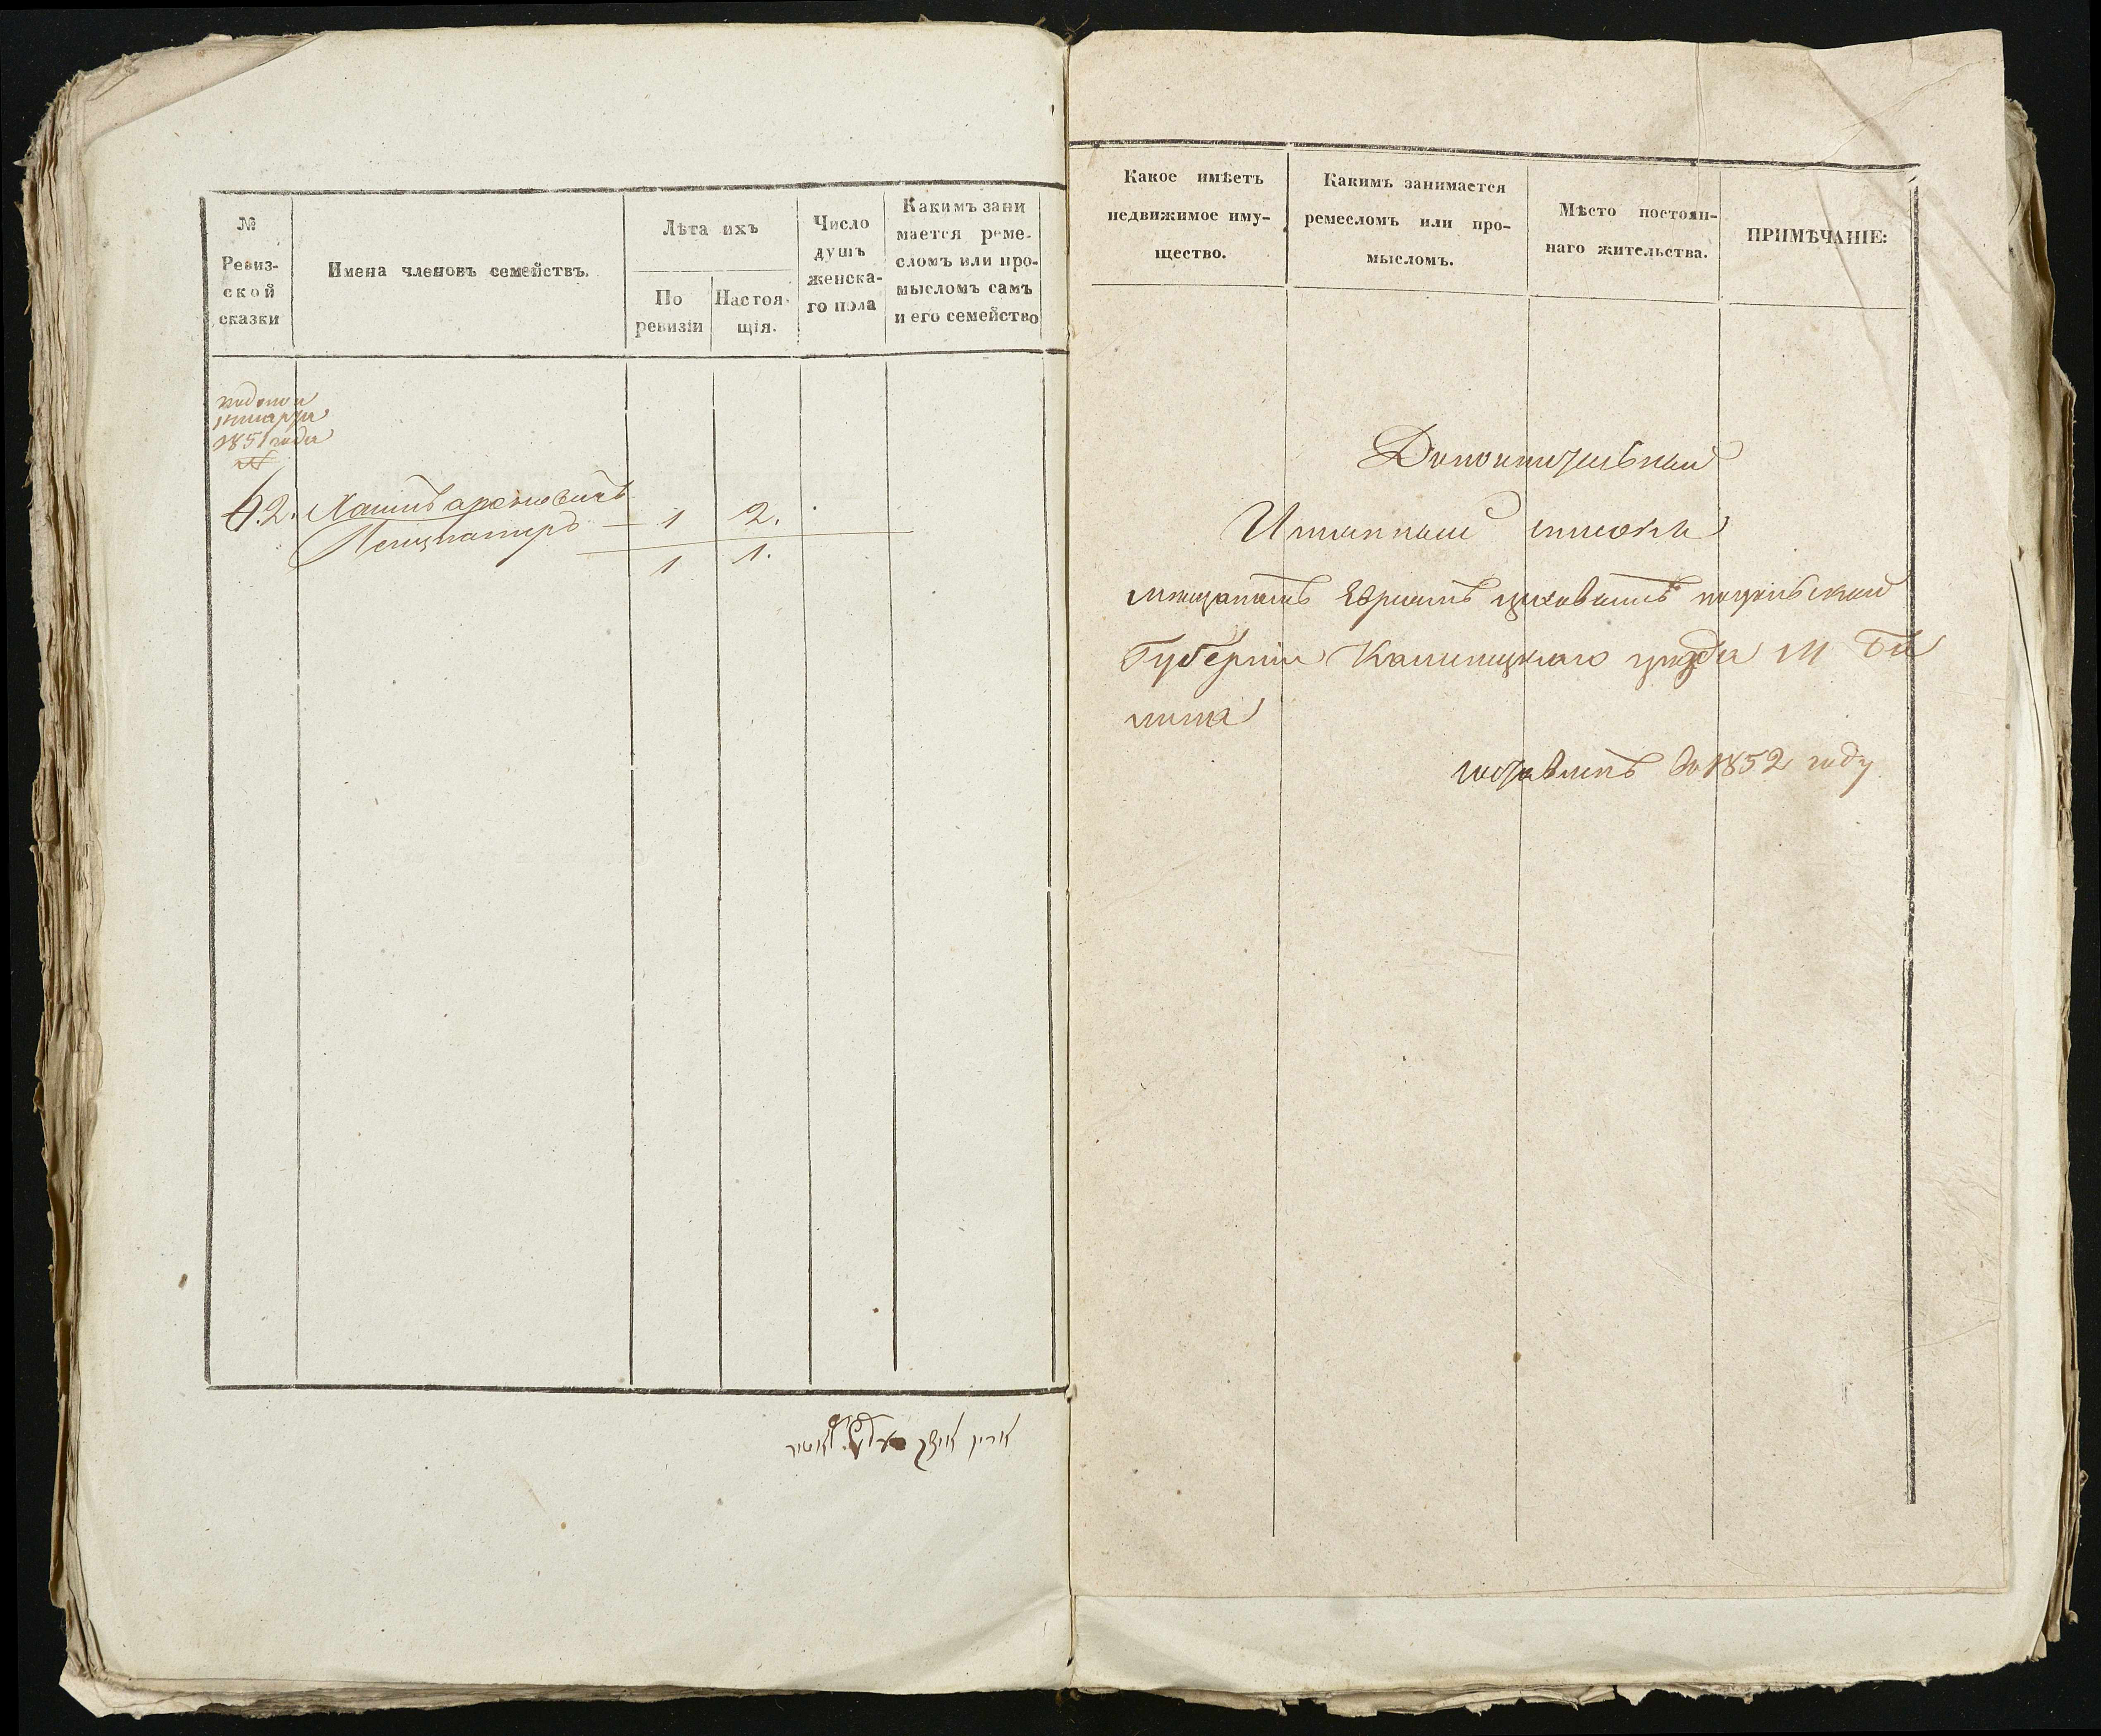 №
Ревиз-
ской
сказки
Имена членовъ семействъ.
Лѣта ихъ
По
ревизіи
Настоя-
щія.
Число
душъ
женска-
го пола
Какимъ зани
мается реме-
сломъ или про-
мысломъ самъ
и его семейство
1851 года
№
6.2.
1 2.
1 1.
Какое имѣетъ
недвижимое иму-
щество.
Какимъ занимается
ремесломъ или про-
мысломъ.
Мѣсто постоян-
наго жительства.
ПРИМѢЧАНІЕ:
Дополнительный
Имянный списокъ
мещанамъ Евреямъ цеховымъ подольской
Губерніи Каменецкаго уезда М
составленъ въ 1852 году